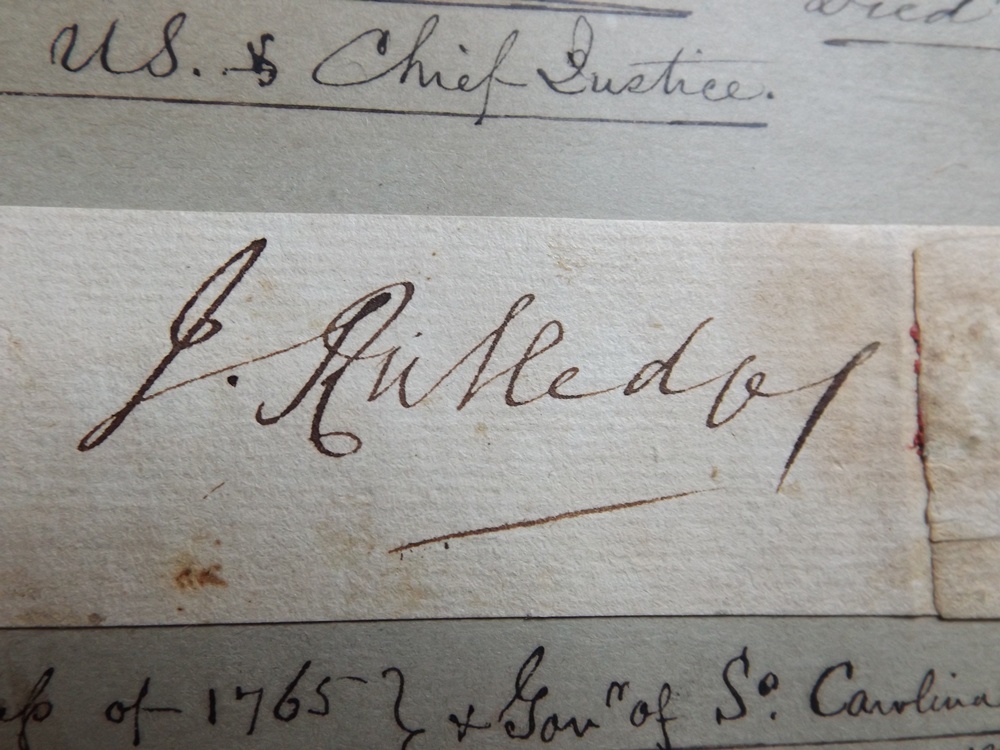 Died
US. Chief Justice.
J. Rutledge
of 1765 } & Govʳ of Sº. Carolina